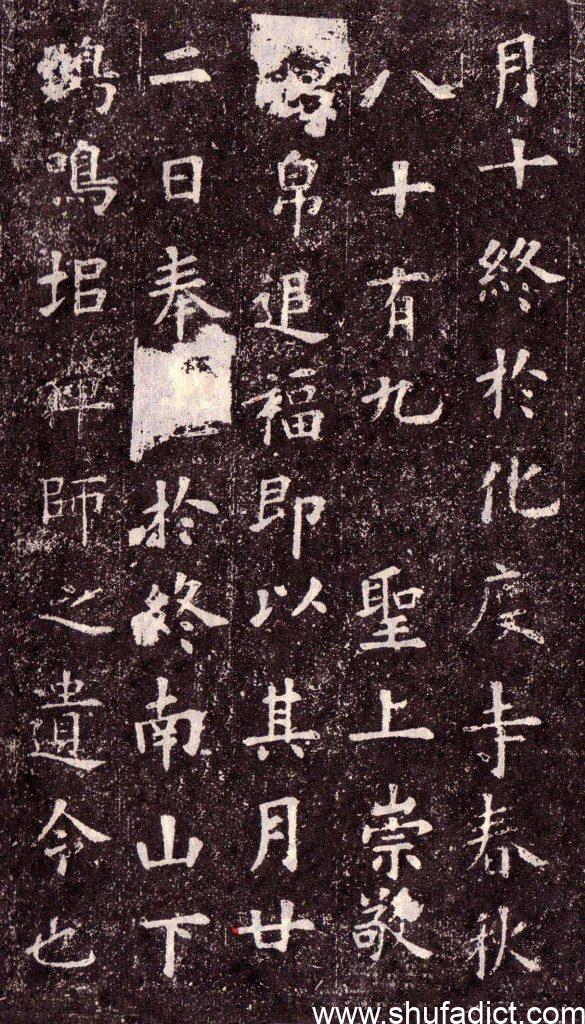 月十終於化度寺春秋
八十有九聖上崇敬
帛追福即以其月廿
二日奉於終南山下
鳴埳禪師之遺令也
www.shufadict.com